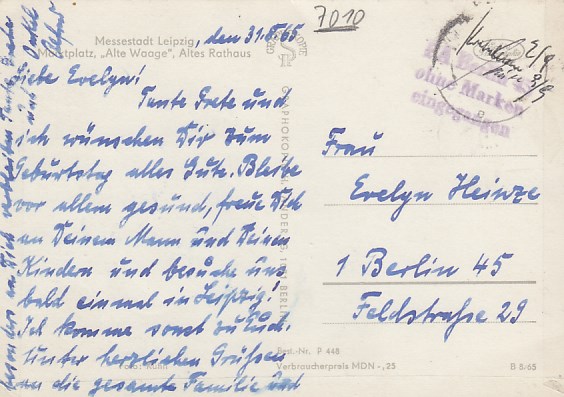 7010
Messestadt Leipzig,
den 31.8.65
Marktplatz, „Alte Waage", Altes Rathaus
Liebe Evelyn!
Tante Grete und
ich wünschen Dir zum
Geburtstag alles Gute. Bleibe
vor allem gesund, freue Dich
an Deinem Mann und Deinen
Kindern und besuche uns
bald einmal in Leipzig!
Ich komme sonst zu Euch.
Unter herzlichen Grüßen
an die gesamte Familie und
besonders an Dich verbleiben Tante Grete
und Onkel
Alfred
ohne Marken
eingegangen
2/9
3/9
Frau
Evelyn Heinze
1 Berlin 45
Feldstraße 29
Best.-Nr. P 448
Verbraucherpreis MDN -,25
B 8-65